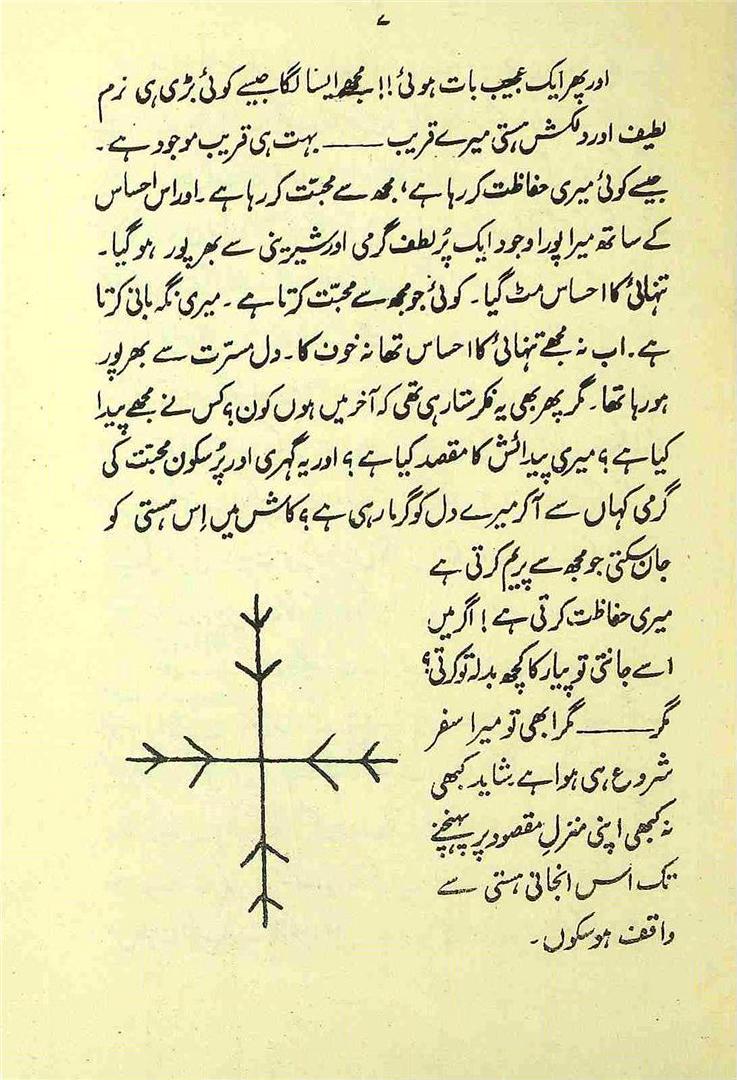 ۷
اور پھر ایک عجیب بات ہوئی!! مجھے ایسا لگا جیسے کوئی بڑی ہی نرم
لطیف اور دلکش ہستی میرے قریب ــــــ بہت ہی قریب موجود ہے۔
جیسے کوئی میری حفاظت کر رہا ہے، مجھ سے محبّت کر رہا ہے۔ اور اس احساس
کے ساتھ میرا پورا وجود ایک پُر لطف گرمی اور شیرینی سے بھر پور ہو گیا۔
تنہائی کا احساس مٹ گیا۔ کوئی جو مجھ سے محبّت کرتا ہے۔ میری نگہبانی کرتا
ہے۔ اب نہ مجھے تنہائی کا احساس تھا نہ خون کا۔ دل مسرّت سے بھر پور
ہو رہا تھا۔ مگر پھر بھی یہ فکر ستا رہی تھی کہ آخر میں ہوں کون؟ کس نے مجھے پیدا
کیا ہے؟ میری پیدائش کا مقصد کیا ہے؟ اور یہ گہری اور پُر سکون محبّت کی
گرمی کہاں سے آکر میرے دل کو گرما رہی ہے؟ کاش میں اِس ہستی کو
جان سکتی جو مجھ سے پریم کرتی ہے
میری حفاظت کرتی ہے! اگر میں
اسے جانتی تو پیار کا کچھ بدلہ تو کرتی؟
مگر ــــــ مگر ابھی تو میرا سفر
شروع ہی ہوا ہے شاید کبھی
نہ کبھی اپنی منزلِ مقصود پر پہنچنے
تک اس انجانی ہستی سے
واقف ہو سکوں۔